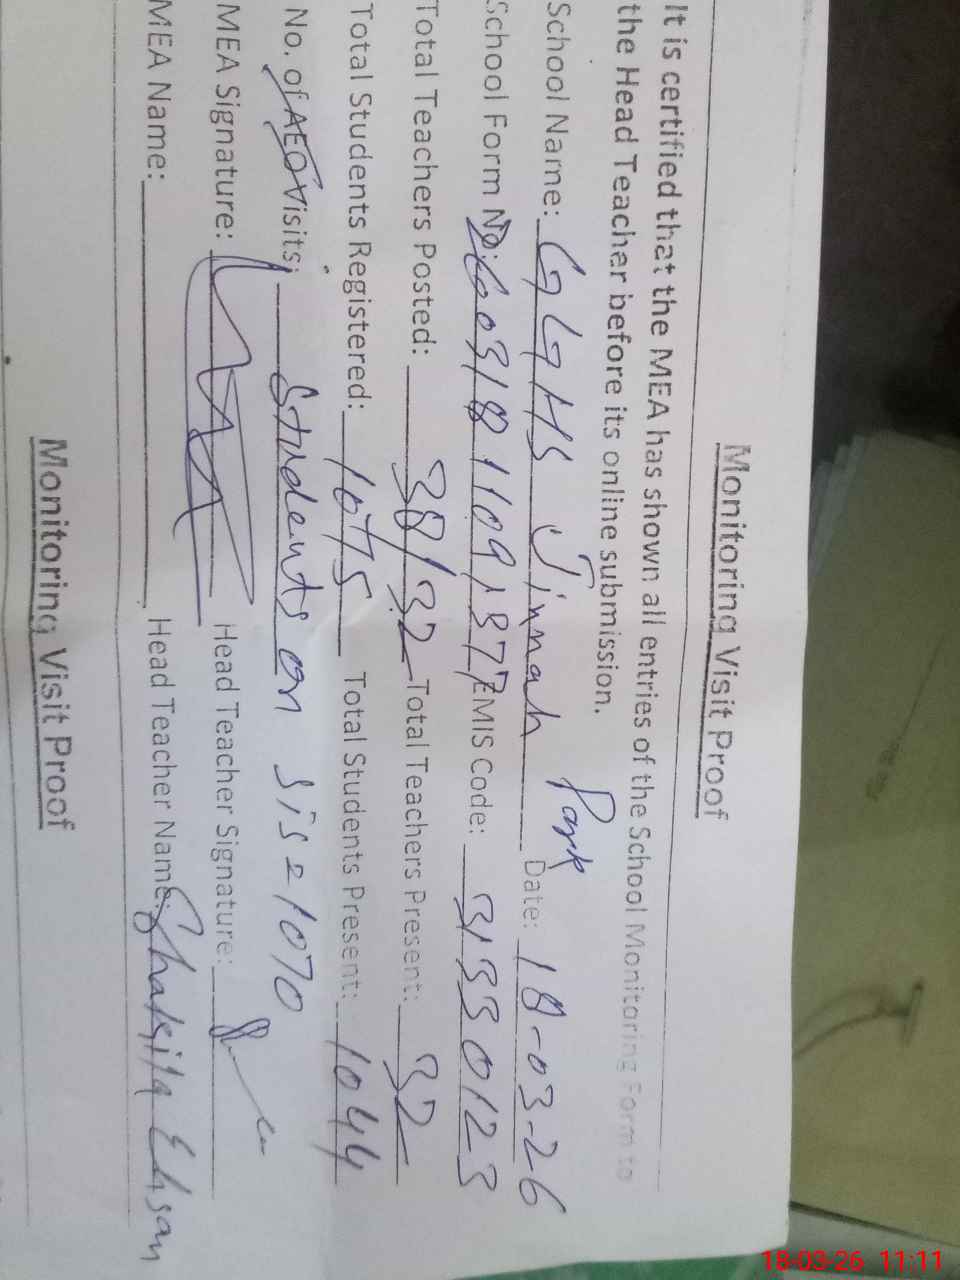 Monitoring Visit Proof
It is certified that the MEA has shown all entries of the School Monitoring Form to
the Head Teacher before its online submission.
School Name: GGHS Jinnah Park Date: 18-03-26
School Form No: 26031811091377 EMIS Code: 31330123
Total Teachers Posted: 38/32 Total Teachers Present: 32
Total Students Registered: 1075 Total Students Present: 1044
No. of AEO Visits: Students on sis = 1070
MEA Signature: Head Teacher Signature:
MEA Name: Head Teacher Name: Shakila Ehsan
Monitoring Visit Proof
18-03-26 11:11